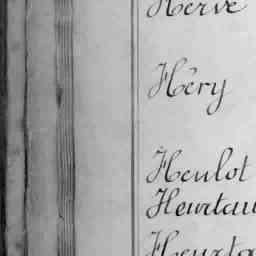 Hervé
Héry
Heulot
Heurtau
Heurta